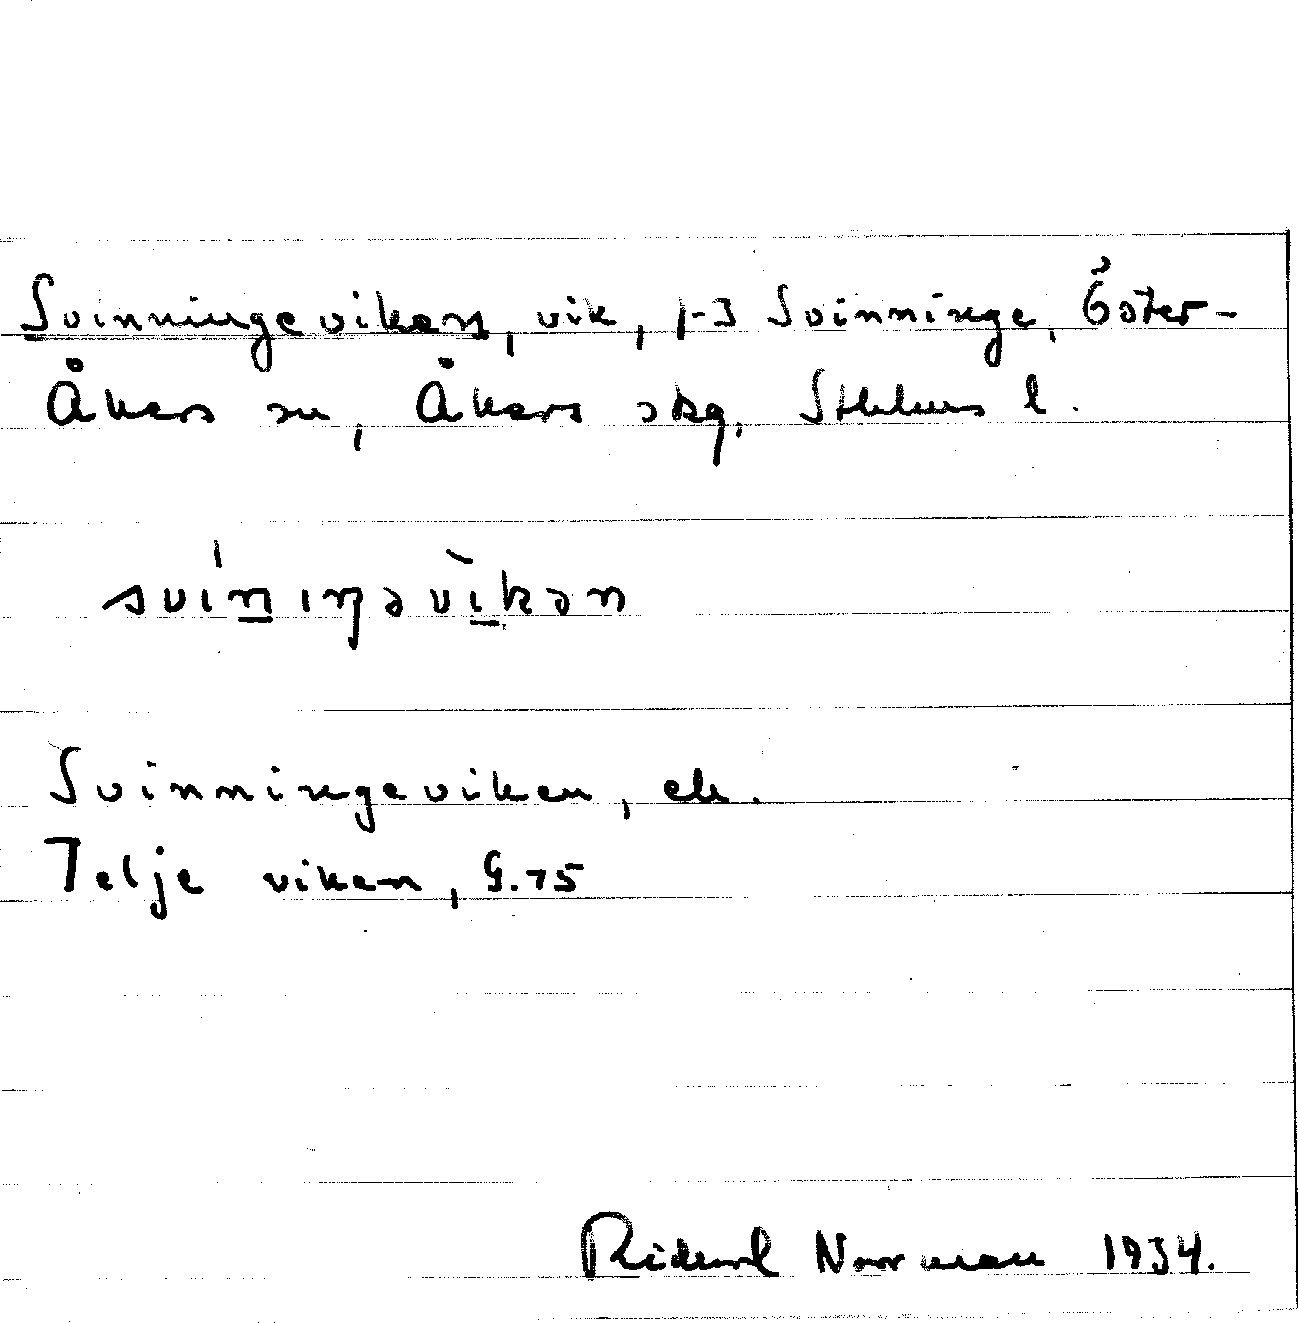 Svinningeviken, vik, 1-3 Svinninge, Öster-
Åkers sn, Åkers skg, Sthlms l.
svíniŋəvìkən
Svinningeviken, ek.
Telje viken, G.75
Norman 1934.